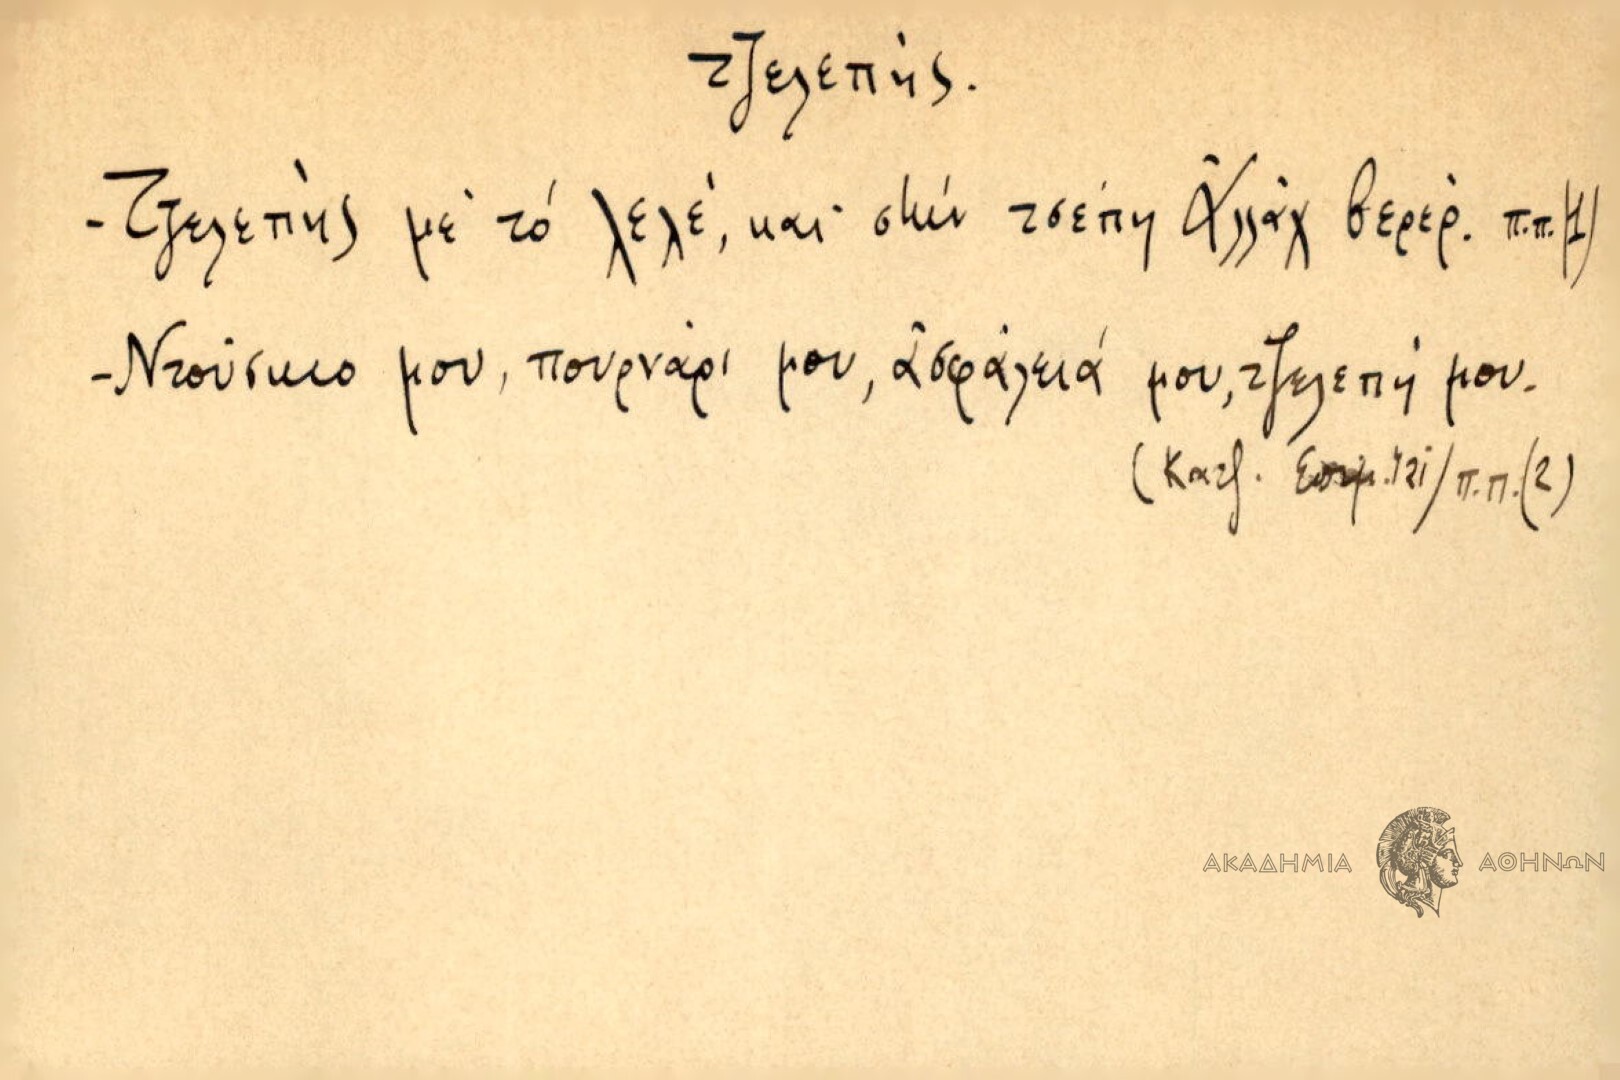 τζελεπής.
- Τζελεπής μέ τό λελέ, καί στήν τσέπη Ἀλλάχ βερέρ. π.π.(1)
- Ντούσκιο μου, πουρνάρι μου, ἀσφάλειά μου, τζελεπή μου.
(Κατζ. /π.π.(2)
ΑΚΑΔΗΜΙΑ ΑΘΗΝΩΝ